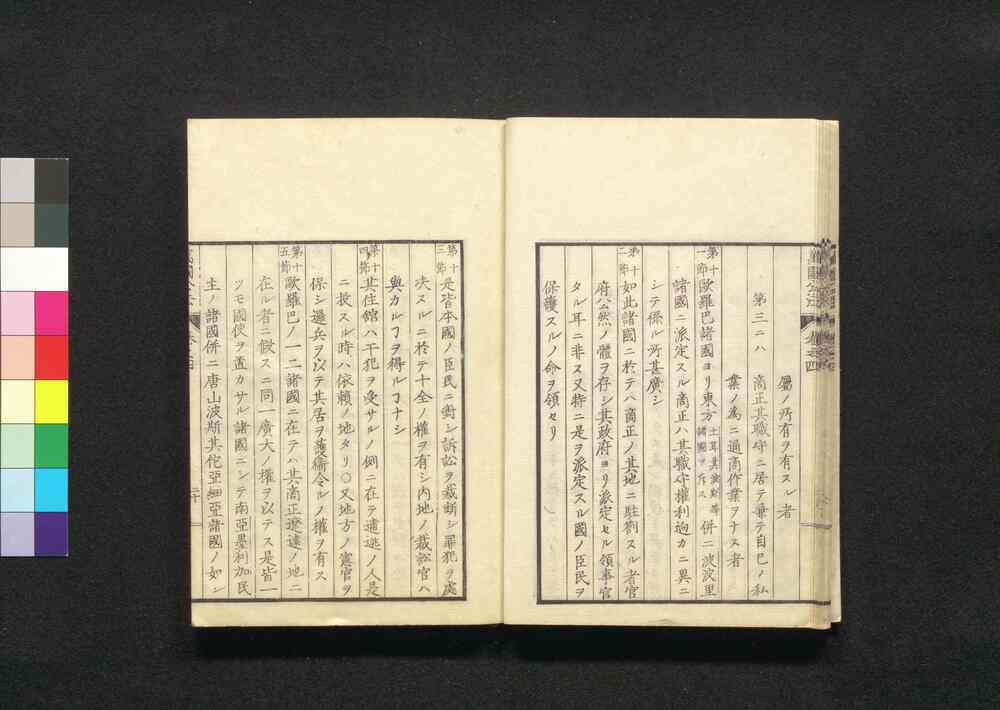 屬ノ所有ヲ有スル者
第三ニハ 商正其職守ニ居テ兼テ自己ノ私
業ノ為ニ通商作業ヲナス者
第十一節 歐羅巴諸國ヨリ東方土耳其波斯等諸國ヲ斥ス併ニ波波里
諸國ニ派定スル商正ハ其職守權利迥カニ異ニ
シテ係ル所甚廣シ
第十二節 如此諸國ニ於テハ商正ノ其地ニ駐劄スル者官
府公然ノ體ヲ存シ其政府ヨリ派定セル領事官
タル耳ニ非ス又特ニ是ヲ派定スル國ノ臣民ヲ
保護スルノ命ヲ領セリ
第十三節 是皆本國ノ臣民ニ對シ訴訟ヲ裁斷シ罪犯ヲ處
决スルニ於テ十全ノ權ヲ有シ内地ノ裁訟官ハ
與カルヿヲ得ルヿナシ
第十四節 其住館ハ干犯ヲ受サルノ例ニ在テ逋逃ノ人是
ニ投スル時ハ依賴ノ地タリ○又地方ノ憲官ヲ
保シ邏兵ヲ以テ其居ヲ護衞令ルノ權ヲ有ス
第十五節 歐羅巴ノ一二諸國ニ在テハ其商正遼遠ノ地ニ
在ル者ニ倣スニ同一廣大ノ權ヲ以テス是皆一
ツモ國使ヲ置カサル諸國ニシテ南亞墨利加民
主ノ諸國併ニ唐山波斯其佗亞細亞諸國ノ如シ